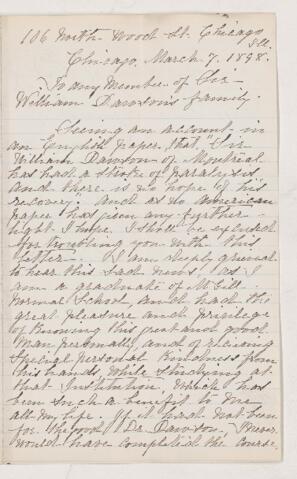 106 North Wood St. Chicago
Ill.
Chicago, March 7. 1898.
To any Member of Sir
William Dawson's family.
Seeing an account in
an English paper, that "Sir
William Dawson of Montreal
has had a stroke of paralysis
and there is no hope of his
recovery", and as no American
paper has given any further
light I hope I shall be excused
for troubling you with this
letter. I am deeply grieved
to hear this sad news, as I
am a graduate of McGill
Normal School, and had the
great pleasure and privilege
of knowing this great and good
man personally, and of receiving
special personal kindness from
his hands while studying at
that Institution, which has
been such a benefit to me
all my life. If it had not been
for the good Dr. Dawson, I never
would have completed the course